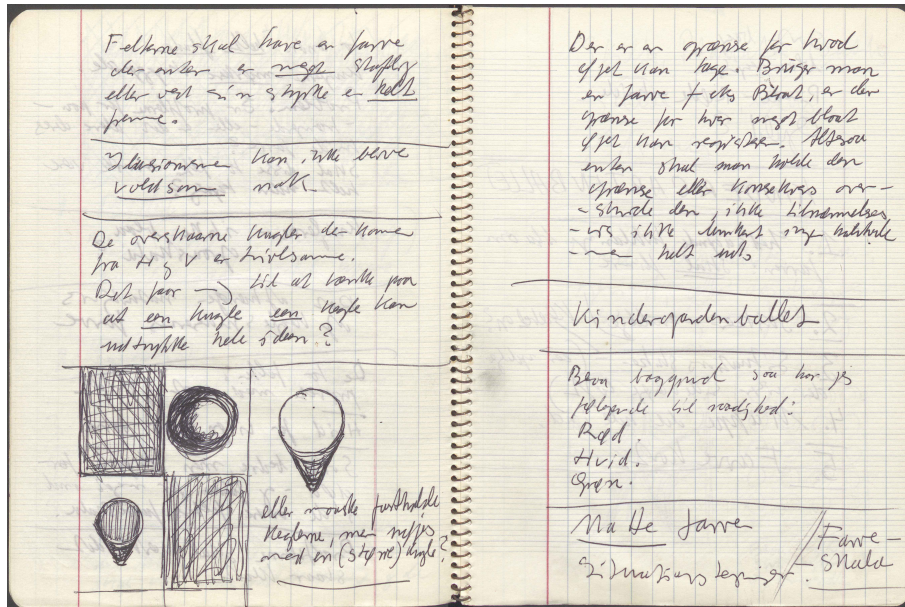 Felterne skal have en farve
der enten er meget kraftig
eller ved sin styrke er helt
Illusionerne kan ikke blive
voldsom nok
De overskaarne kugler der kommer
fra H og V er tvivlsomme.
Det faar til at tænke paa
at een kugle een kegle kan
udtrykke hele ideen?
eller maaske fastholde
keglerne, men nøjes
med en (større) kugle?
Der er en grænse for hvad
øjet kan tage. Bruger man
en farve f eks Blaat, er der
grænse for hvor meget blaat
øjet kan registrere. Altsaa
enten skal man holde den
grænse eller konsekvens over-
-skride den, ikke tilnærmelses
-vis ikke
-men helt ud
Kindergardenballet
baggrund saa har jeg
følgende til raadighed:
Rød.
Hvid.
Grøn.
Matte farver
Farve-
skala
Situationstegninger.